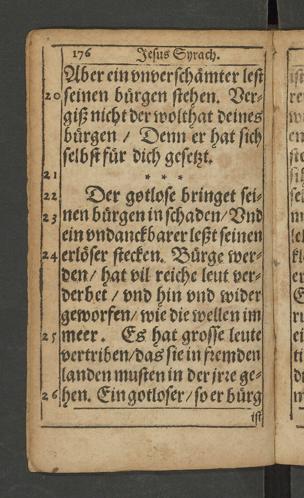 176 Jesus Syrach.
Aber ein vnverschämter lest
20 seinen bürgen stehen. Ver-
giß nicht der wolthat deines
bürgen / Denn er hat sich
selbst für dich gesetzt.
21 * * *
22 Der gotlose bringet sei-
23 nen bürgen in schaden / Vnd
ein vndanckbarer leßt seinen
24 erlöser stecken. Bürge wer-
den / hat vil reiche leut ver-
derbet / vnd hin vnd wider
geworfen / wie die wellen im
25 meer. Es hat grosse leute
vertriben / das sie in fremden
landen musten in der jrre ge-
26 hen. Ein gotloser / so er bürg
ist